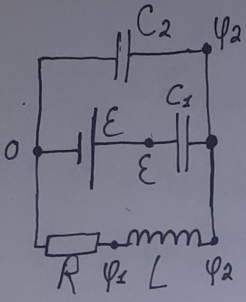 C₂ φ₂
ℰ C₁
0 ℰ
R φ₁ L φ₂